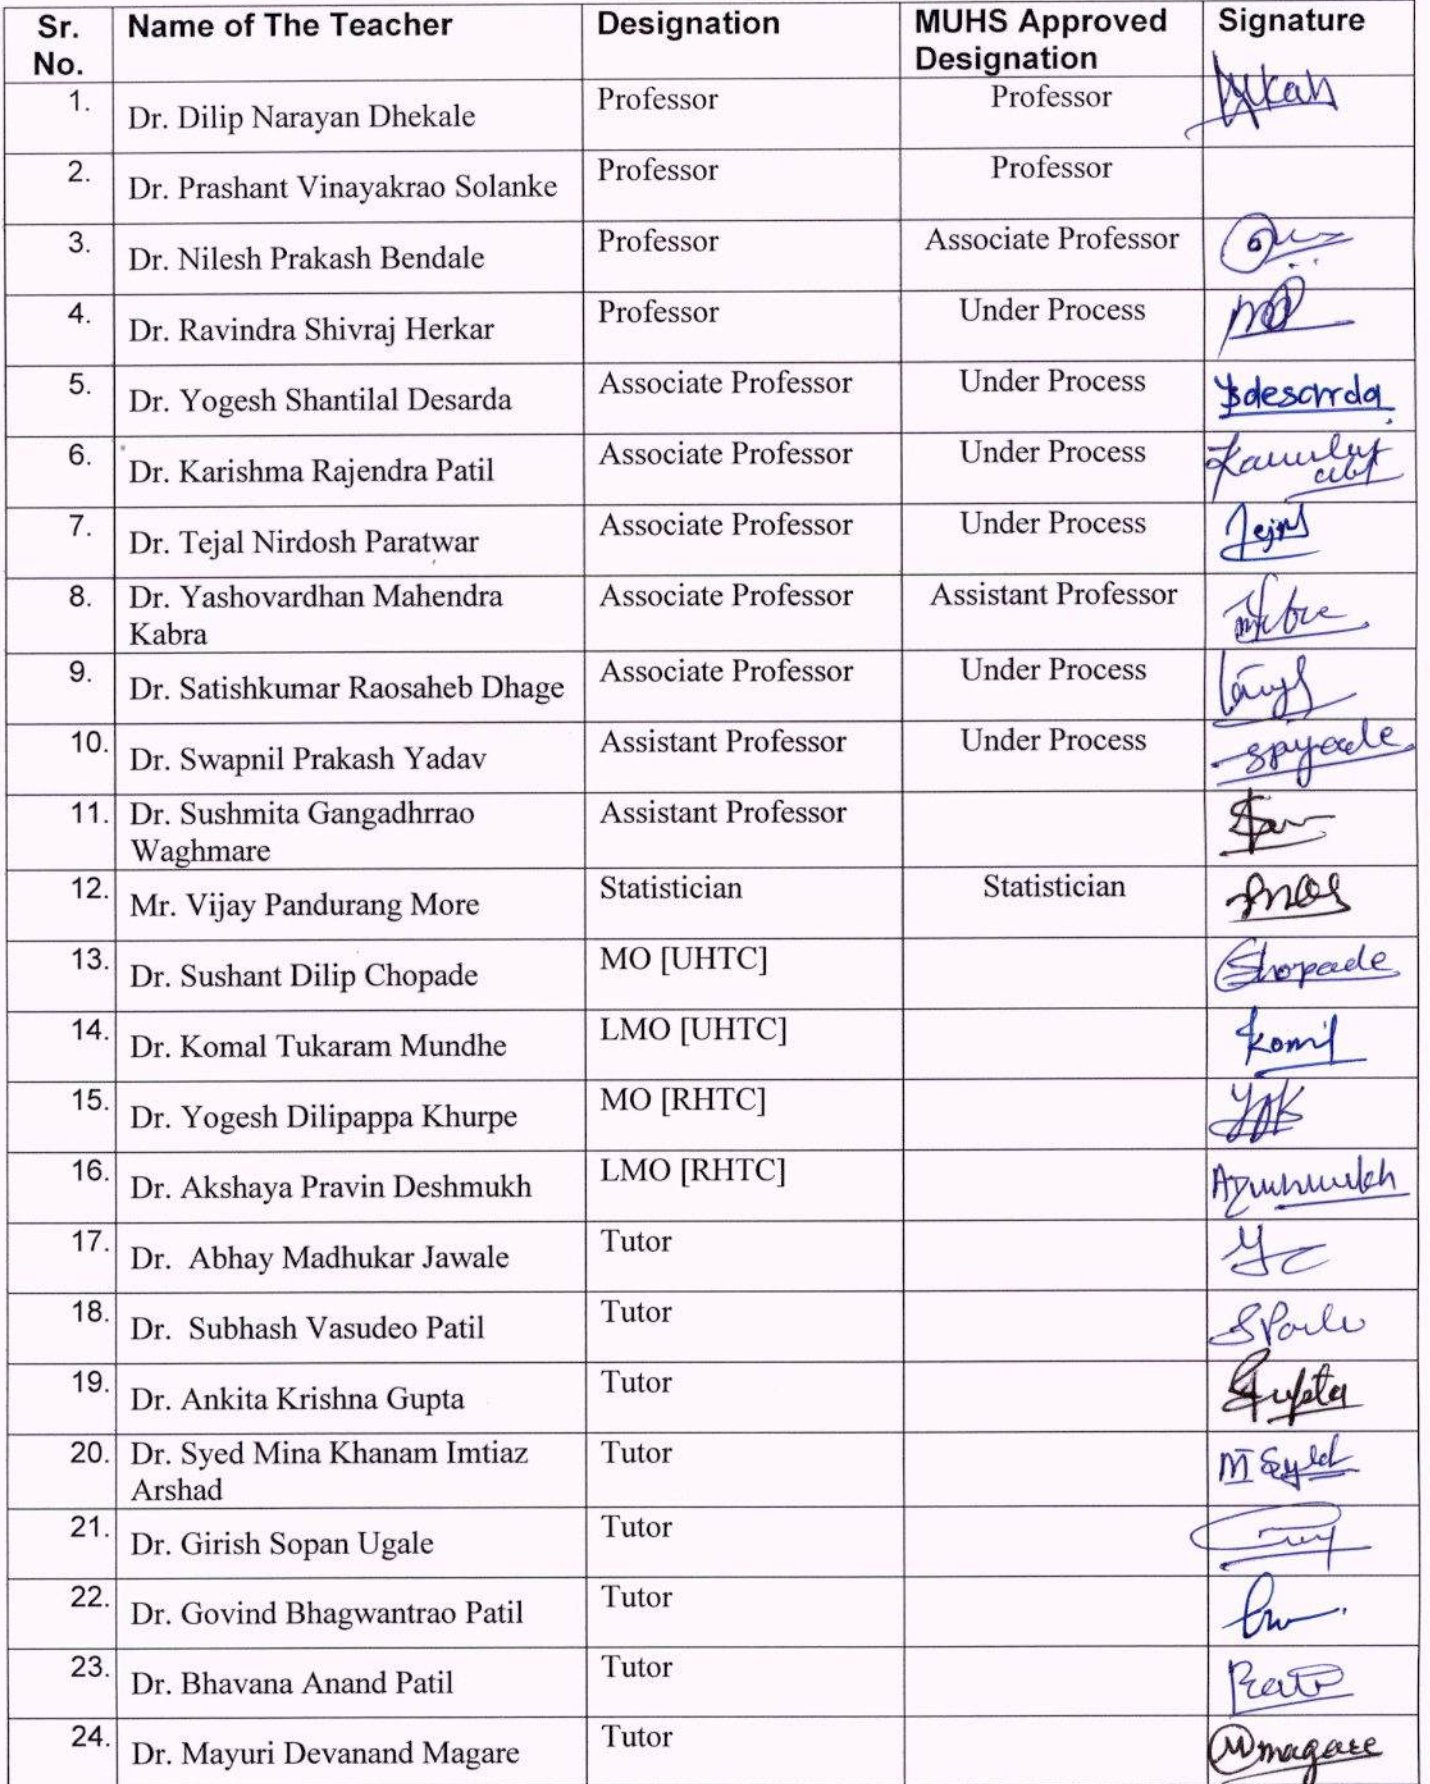 Sr. No. Name of The Teacher Designation MUHS Approved Designation Signature
1. Dr. Dilip Narayan Dhekale Professor Professor
2. Dr. Prashant Vinayakrao Solanke Professor Professor
3. Dr. Nilesh Prakash Bendale Professor Associate Professor
4. Dr. Ravindra Shivraj Herkar Professor Under Process
5. Dr. Yogesh Shantilal Desarda Associate Professor Under Process Ysdesarda
6. Dr. Karishma Rajendra Patil Associate Professor Under Process
7. Dr. Tejal Nirdosh Paratwar Associate Professor Under Process
8. Dr. Yashovardhan Mahendra Kabra Associate Professor Assistant Professor
9. Dr. Satishkumar Raosaheb Dhage Associate Professor Under Process
10. Dr. Swapnil Prakash Yadav Assistant Professor Under Process
11. Dr. Sushmita Gangadhrrao Waghmare Assistant Professor
12. Mr. Vijay Pandurang More Statistician Statistician
13. Dr. Sushant Dilip Chopade MO [UHTC] Chopade
14. Dr. Komal Tukaram Mundhe LMO [UHTC]
15. Dr. Yogesh Dilipappa Khurpe MO [RHTC]
16. Dr. Akshaya Pravin Deshmukh LMO [RHTC]
17. Dr. Abhay Madhukar Jawale Tutor
18. Dr. Subhash Vasudeo Patil Tutor
19. Dr. Ankita Krishna Gupta Tutor Gupta
20. Dr. Syed Mina Khanam Imtiaz Arshad Tutor
21. Dr. Girish Sopan Ugale Tutor
22. Dr. Govind Bhagwantrao Patil Tutor
23. Dr. Bhavana Anand Patil Tutor
24. Dr. Mayuri Devanand Magare Tutor Mmagare